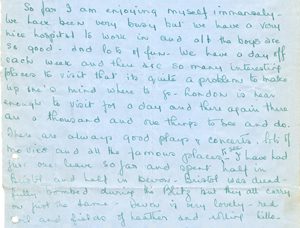 So far I am enjoying myself immensely -
we have been very busy but we have a very
nice hospital to work in and all the boys are
so good - and lots of fun. We have a day off
each week and there are so many interesting
places to visit that its quite a problem to make
up one's mind where to go - London is near
enough to visit for a day and there again there
are a thousand and one things to see and do.
There are always good plays & concerts, lots of
movies and all the famous places to see. I have had
one leave so far and spent half in
Bristol and half in Devon. Bristol was
bombed during the Blitz but they all carry
on just the same - Devon is very lovely - red
soil and fields of heather and rolling hills -